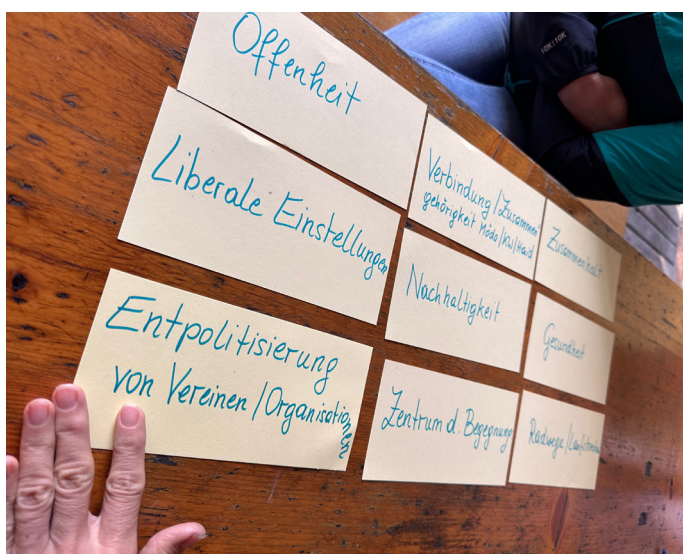 Offenheit
Liberale Einstellungen
Entpolitisierung
von Vereinen / Organisationen
Verbindung / Zusammen
gehörigkeit Mödo / KW / Haid
Nachhaltigkeit
Zentrum d. Begegnung
Zusammenhalt
Gesundheit
Radwege /